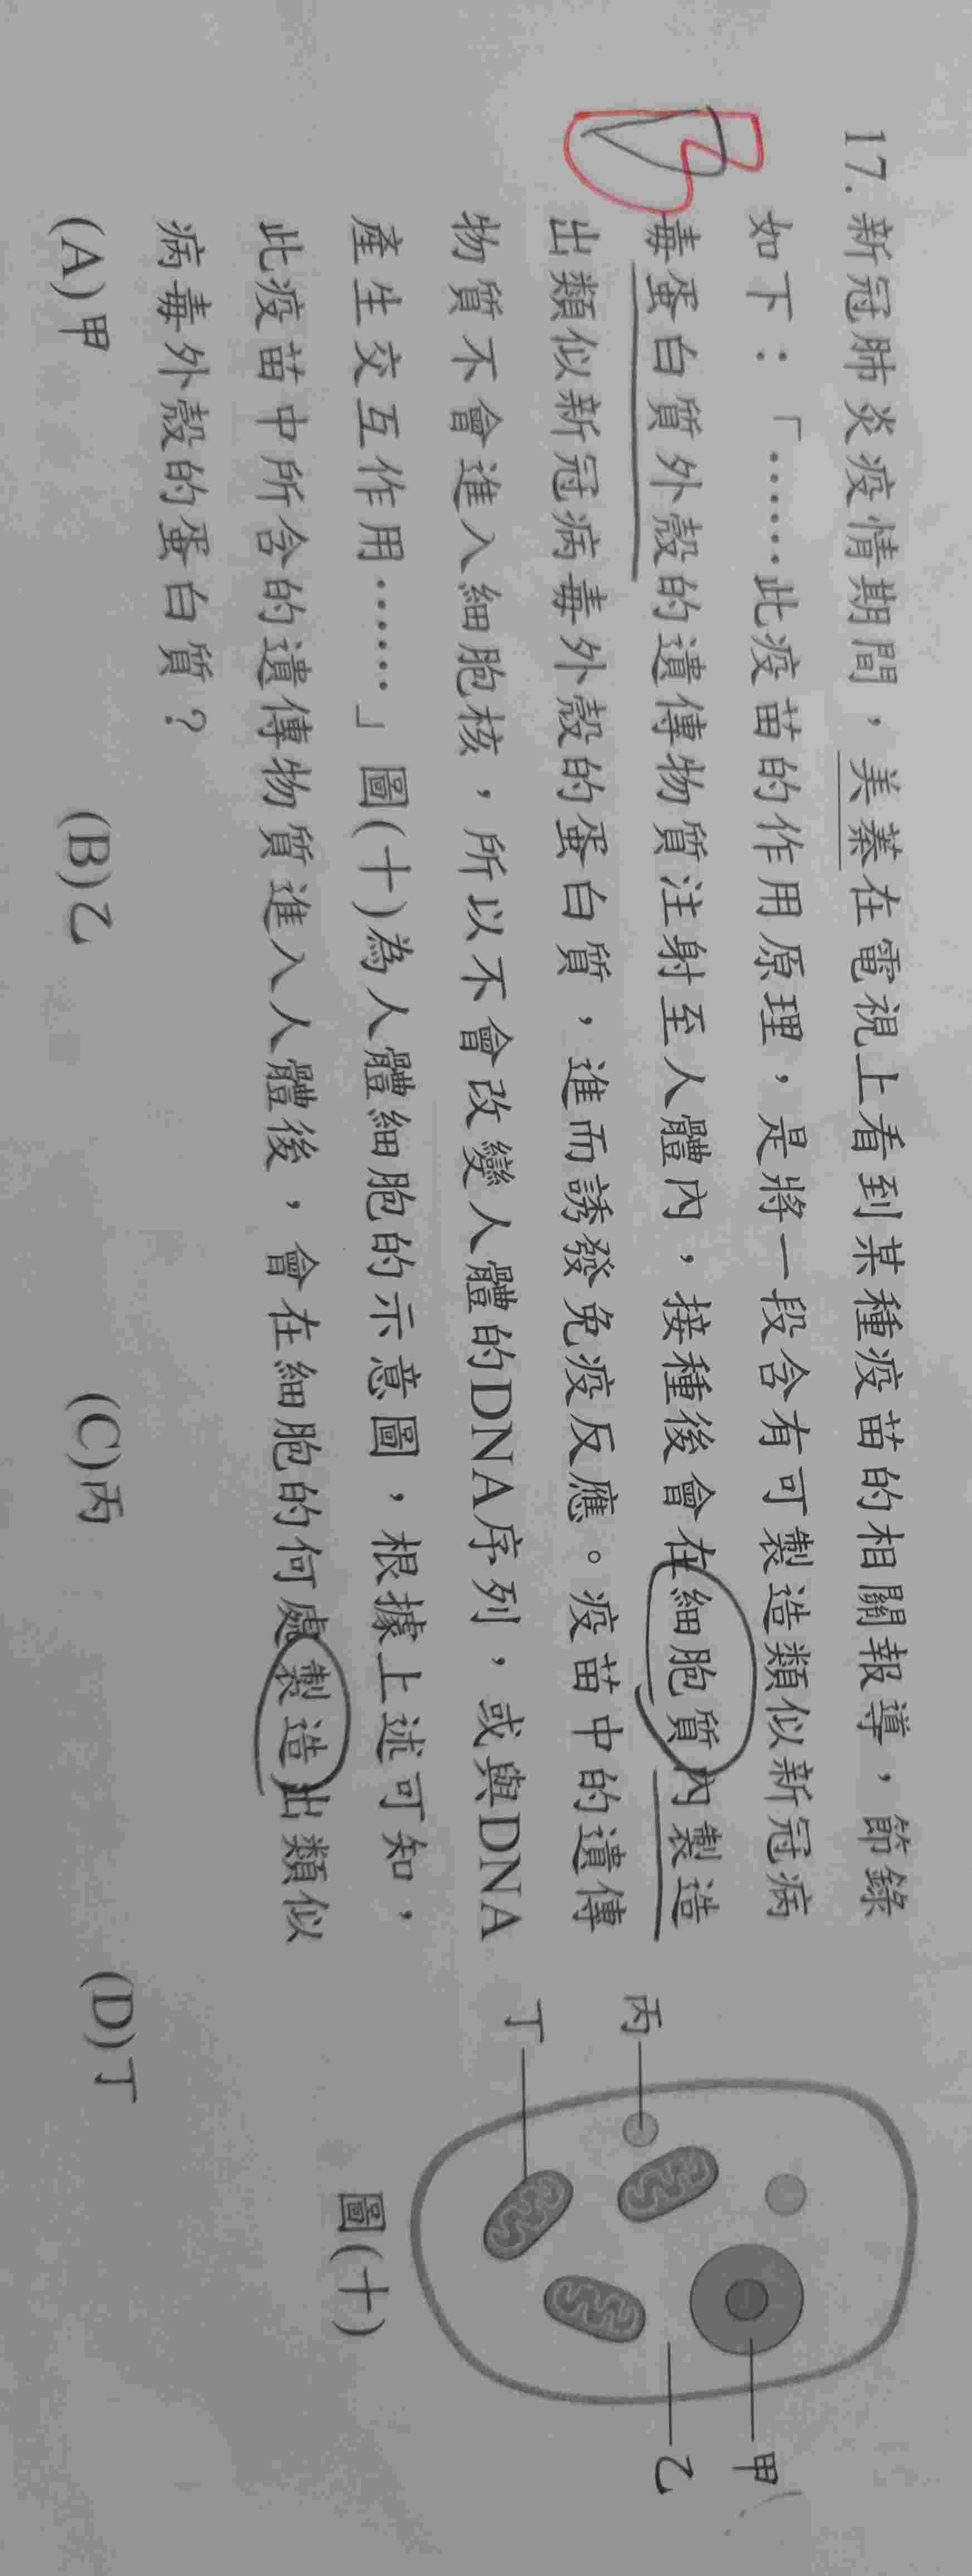 17.新冠肺炎疫情期間，美蓁在電視上看到某種疫苗的相關報導，節錄
如下：「……此疫苗的作用原理，是將一段含有可製造類似新冠病
毒蛋白質外殼的遺傳物質注射至人體內，接種後會在細胞質內製造
出類似新冠病毒外殼的蛋白質，進而誘發免疫反應。疫苗中的遺傳
物質不會進入細胞核，所以不會改變人體的DNA序列，或與DNA
產生交互作用……」圖(十)為人體細胞的示意圖，根據上述可知，
此疫苗中所含的遺傳物質進入人體後，會在細胞的何處製造出類似
病毒外殼的蛋白質？
(A)甲 (B)乙 (C)丙 (D)丁
B
丙
丁
甲
乙
圖(十)